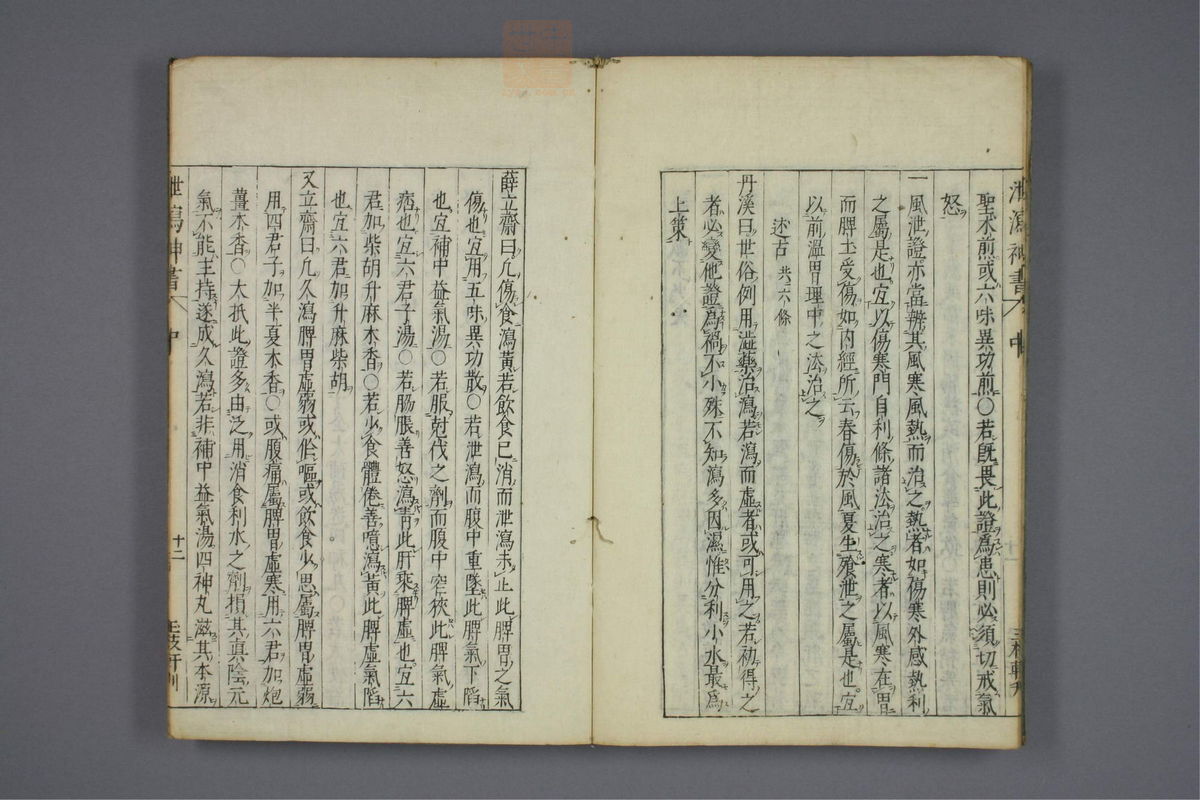 泄瀉神書
中
聖朮煎或六味異功煎○若既畏此證爲患則必須切戒氣
怒
一風泄證亦當辨其風寒風熱而治之熱者如傷寒外感熱利
之屬是也宜以傷寒門自利條諸法治之寒者以風寒在胃
而脾土受傷如内經所云春傷於風夏生飱泄之屬是也宜
以前溫胃理中之法治之
述古 共六條
丹溪曰世俗例用澁藥治瀉若瀉而虛者或可用之若初得之
者必變他證爲禍不小殊不知瀉多因濕惟分利小水最爲
上策
薛立齋曰凢傷食瀉黃若飲食已消而泄瀉未止此脾胃之氣
傷也宜用五味異功散○若泄瀉而腹中重墜此脾氣下陷
也宜補中益氣湯○若服尅伐之劑而腹中窄狹此脾氣虛
痞也宜六君子湯○若脇脹善怒瀉青此肝乘脾虛也宜六
君加柴胡升麻木香○若少食體倦善噫瀉黃此脾虛氣陷
也宜六君加升麻柴胡
又立齋曰凢久瀉脾胃虛弱或作嘔或飲食少思屬脾胃虛弱
用四君子加半夏木香○或腹痛屬脾胃虛寒用六君加炮
薑木香○大抵此證多由泛用消食利水之劑損其眞陰元
氣不能主持遂成久瀉若非補中益氣湯四神丸滋其本源
泄瀉神書
中
十二